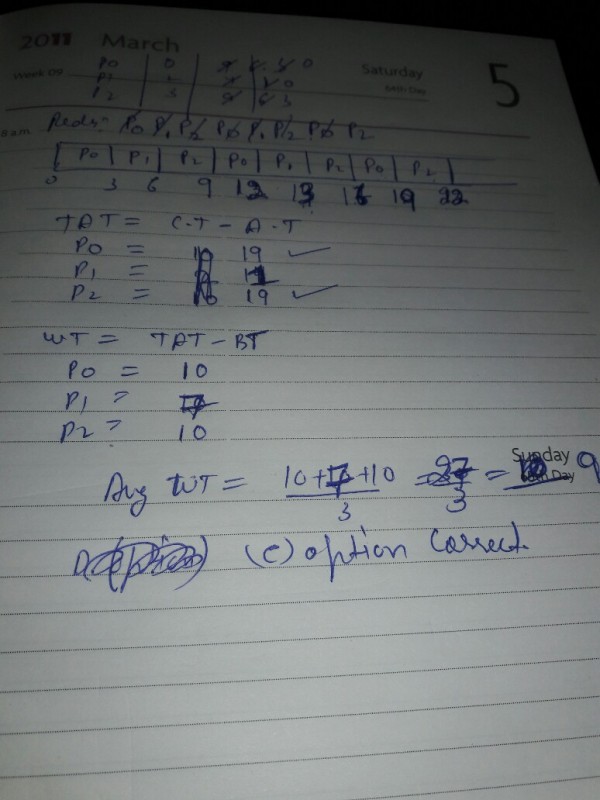 2011 March
Week 09
Saturday
64th Day
5
P0 0 9 6 3 0
P1 2 4 1 0
P2 3 9 6 3
8 am
Ready: P0 P1 P2 P0 P1 P2 P0 P2
P0 P1 P2 P0 P1 P2 P0 P2
0 3 6 9 12 13 16 19 22
TAT = C.T - A.T
P0 = 19
P1 = 11
P2 = 19
WT = TAT - BT
P0 = 10
P1 = 7
P2 = 10
Sunday
Avg WT = 10+7+10 / 3 = 27 / 3 = 9
(C) option Correct.